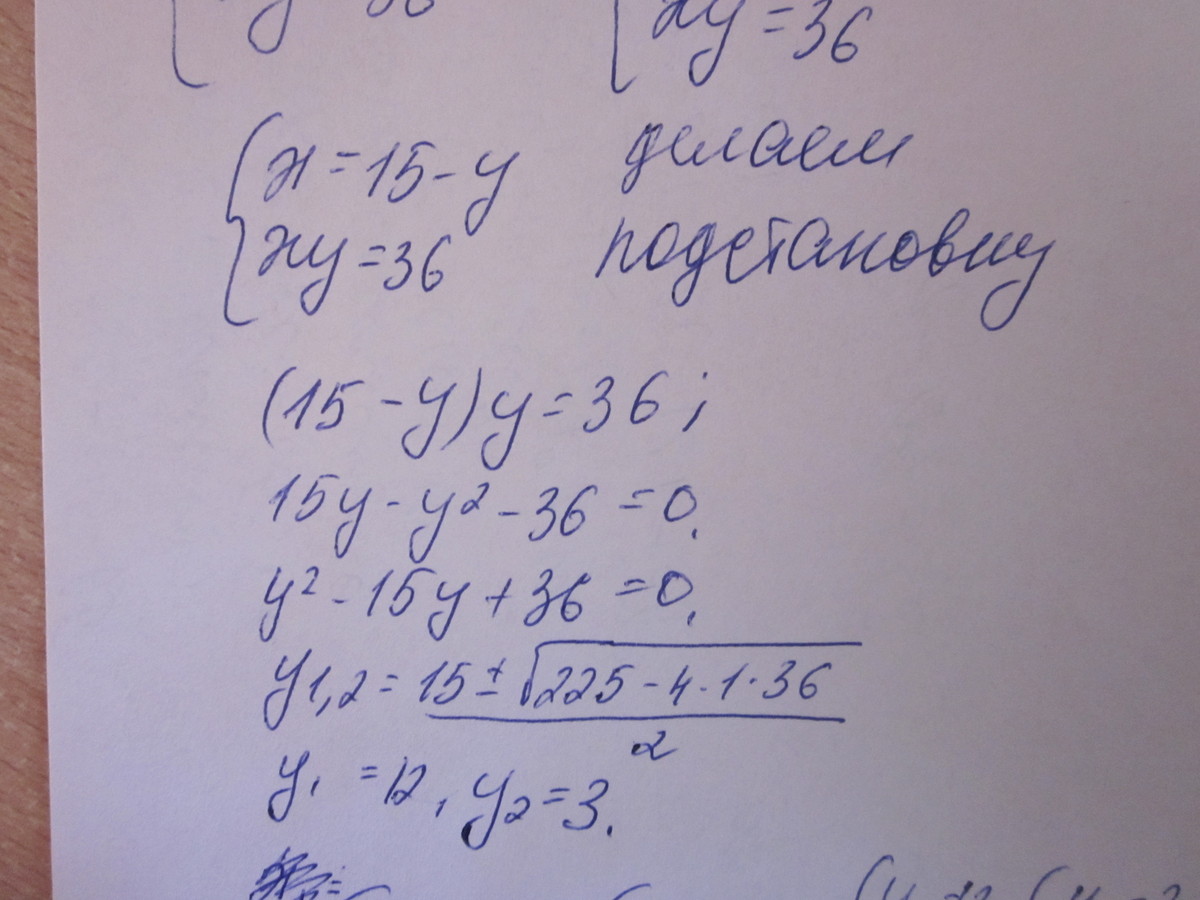 xy = 36
{ x = 15 - y делаем
{ xy = 36 подстановку
(15 - y) y = 36 ;
15y - y² - 36 = 0.
y² - 15y + 36 = 0.
y1,2 = 15 ± √225 - 4 · 1 · 36
2
y1 = 12, y2 = 3.